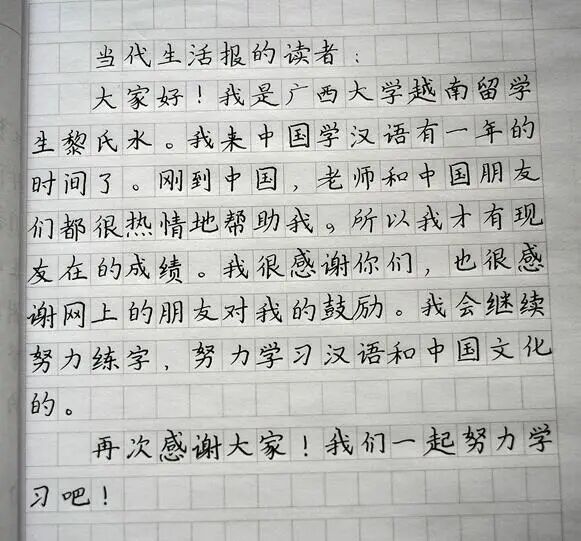 当代生活报的读者：
大家好！我是广西大学越南留学
生黎氏水。我来中国学汉语有一年的
时间了。刚到中国，老师和中国朋友
们都很热情地帮助我。所以我才有现
友在的成绩。我很感谢你们，也很感
谢网上的朋友对我的鼓励。我会继续
努力练字，努力学习汉语和中国文化
的。
再次感谢大家！我们一起努力学
习吧！